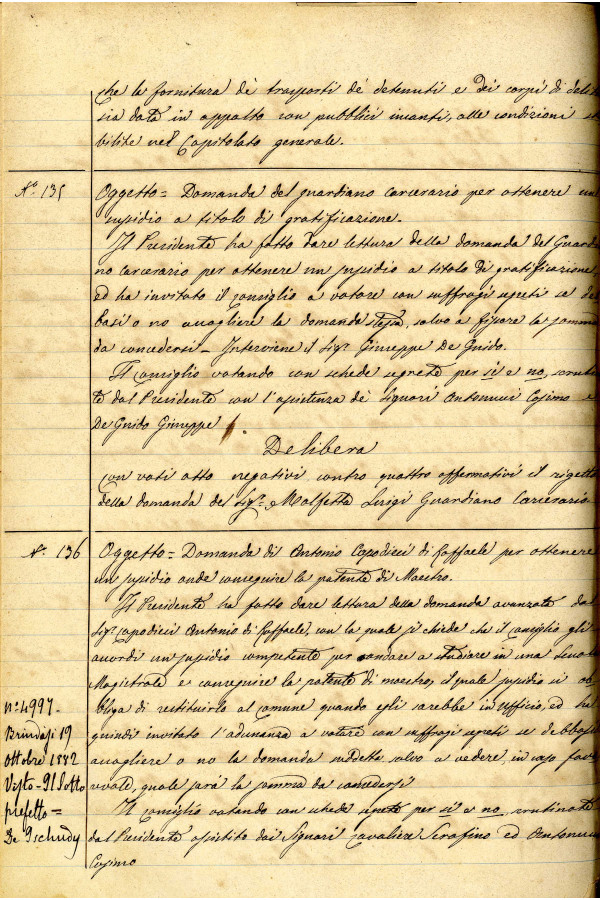 che la fornitura dè trasporti dè detenuti e dei corpi di delit
sia data in appalto con pubblici incanti, alle condizioni sta
bilite nel Capitolato generale.
N.° 135
Oggetto = Domanda del guardiano carcerario per ottenere un
sussidio a titolo di gratificazione.
Il Presidente ha fatto dare lettura della domanda del Guardia
no carcerario per ottenere un sussidio a titolo di gratificazione,
ed ha invitato il consiglio a votare con suffragi segreti se de
basi o no accogliere la domanda stessa, salvo a fissare la somma
da concedersi - Interviene il Sig.r Giuseppe De Guido.
Il consiglio votando con schede segrete per si e no, scruti
te dal Presidente con l'assistenza dè Signori Antonucci Cosimo e
De Guido Giuseppe
Delibera
con voti otto negativi contro quattro affermativi il rigetto
della domanda del Sig.r Molfetta Luigi Guardiano Carcerario
N.° 136
Oggetto = Domanda di Antonio Capodieci di Raffaele per ottenere
un sussidio onde conseguire la patente di Maestro.
Il Presidente ha fatto dare lettura della domanda avanzata dal
Sig.r Capodieci Antonio di Raffaele, con la quale si chiede che il consiglio gli
accordi un sussidio competente per andare a studiare in una Scuola
Magistrale e conseguire la patente di maestro, il quale sussidio si ob
bliga di restituirlo al comune quando egli sarebbe in ufficio, ed ha
quindi invitato l'adunanza a votare con suffragi segreti se debbasi
accogliere o no la domanda suddetta salvo a vedere, in caso favo
revole, quale sarà la somma da concedersi
Il consiglio votando con schede segrete per si e no, scrutinate
dal Presidente assistito dai Signori Cavaliere Serafino ed Antonucci
Cosimo
n.° 4997-
Brindisi 19
Ottobre 1882
Visto - Il Sotto
prefetto =
De Tschudy